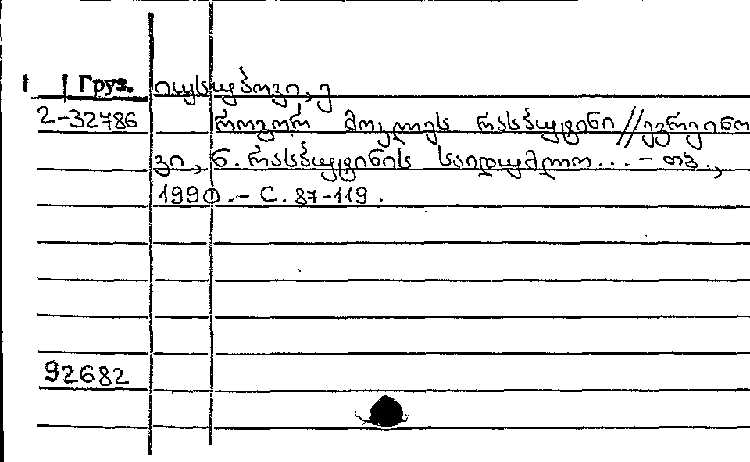 Груз. იუსუპოვი, ე
2-32786 როგორ მოკლეს რასპუტინი // ევრეინო
ვი, ნ. რასპუტინის საიდუმლო... - თბ.,
1990. - С. 87-119.
92682